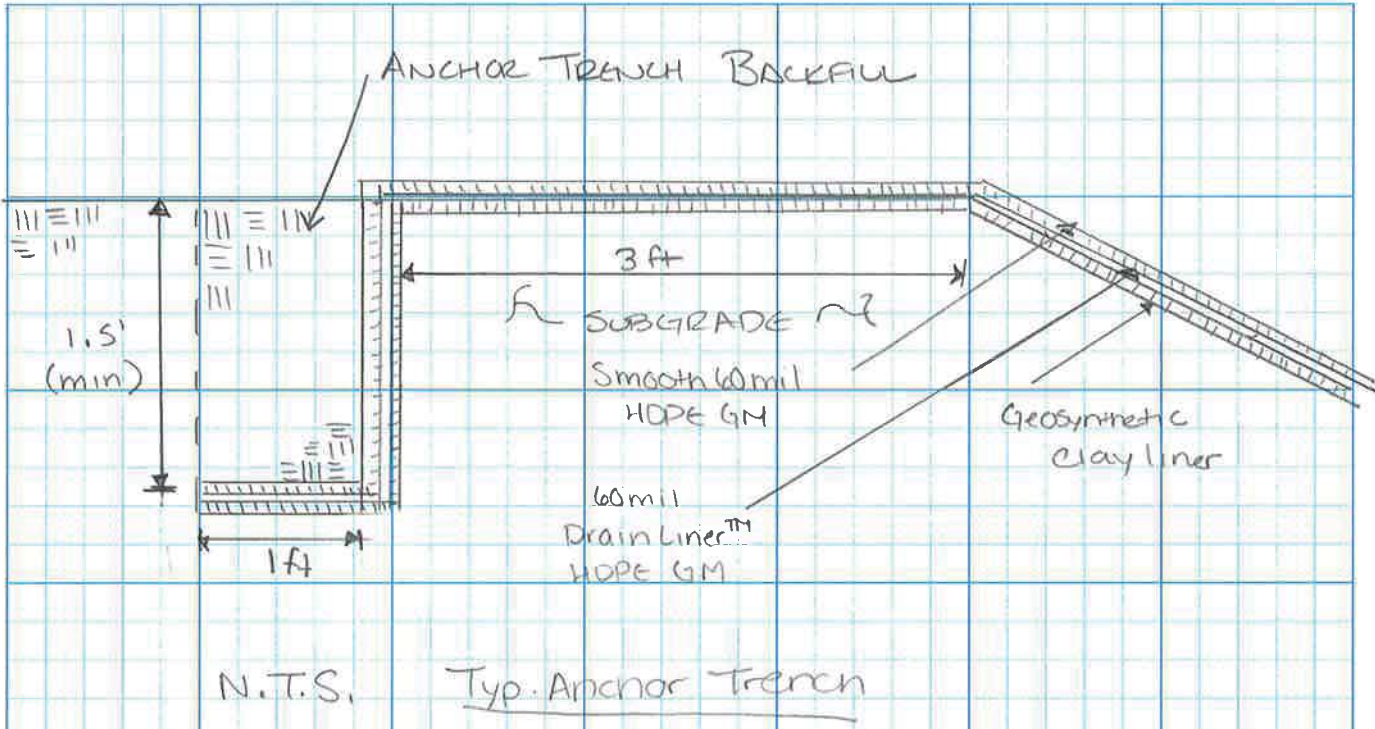 ANCHOR TRENCH BACKFILL
1.5'
(min)
3 ft
SUBGRADE
Smooth 60mil
HDPE GM
Geosynthetic
clay liner
60mil
Drain Liner™
HDPE GM
1 ft
N.T.S.
Typ. Anchor Trench